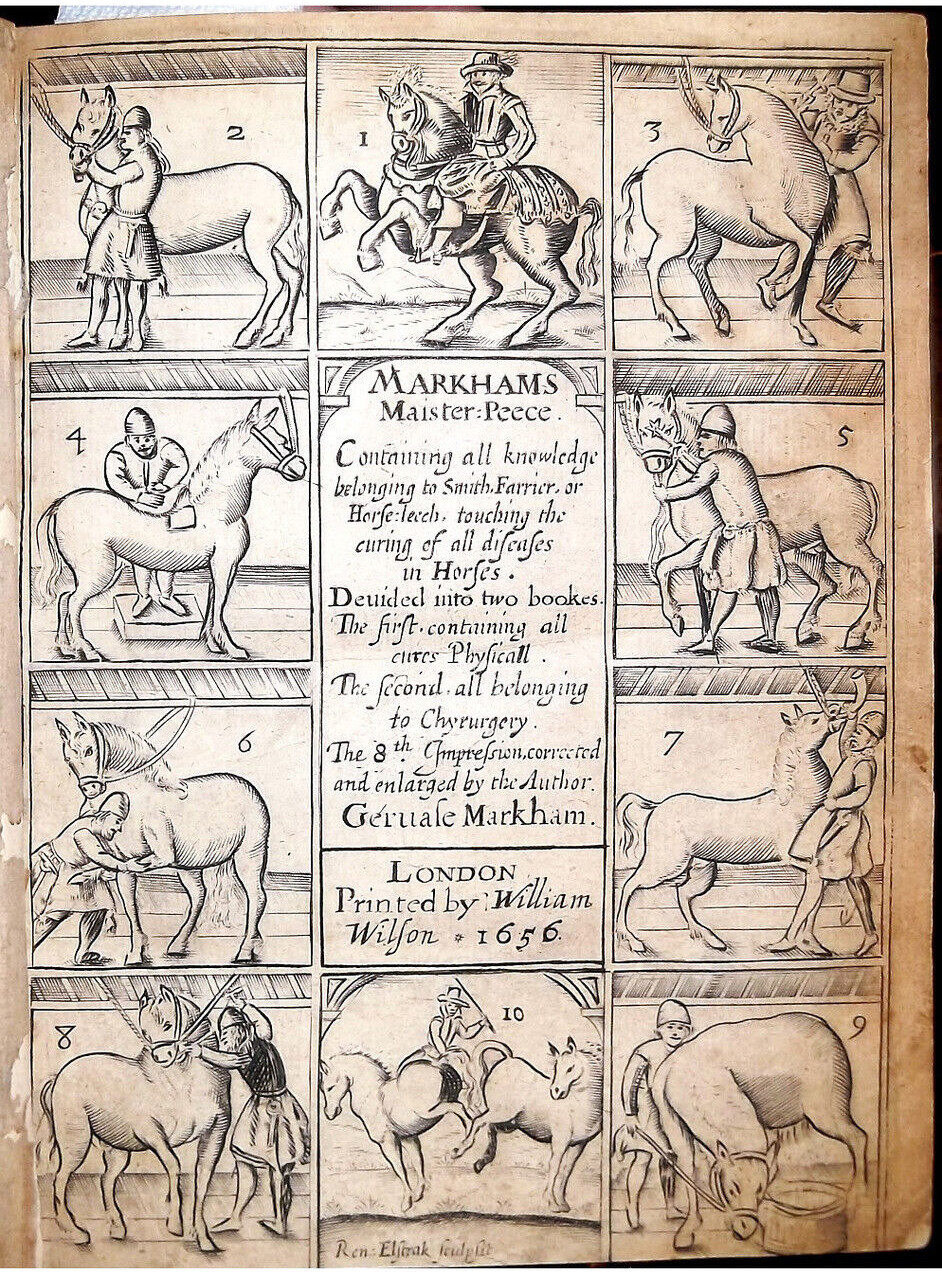 2
1
3
MARKHAMS
Maister=Peece.
4
Containing all knowledge
5
belonging to Smith, Farrier, or
Horse=leech, touching the
curing of all diſeaſes
in Horſes.
Deuided into two bookes.
The first, containing all
cures Physicall.
The ſecond, all belonging
to Chyrurgery.
6
7
The 8th Impreſsion, corrected
and enlarged by the Author.
Geruaſe Markham.
LONDON
Printed by William
Wilſon * 1656.
8
10
9
Ren: Elſtrak ſculpſit